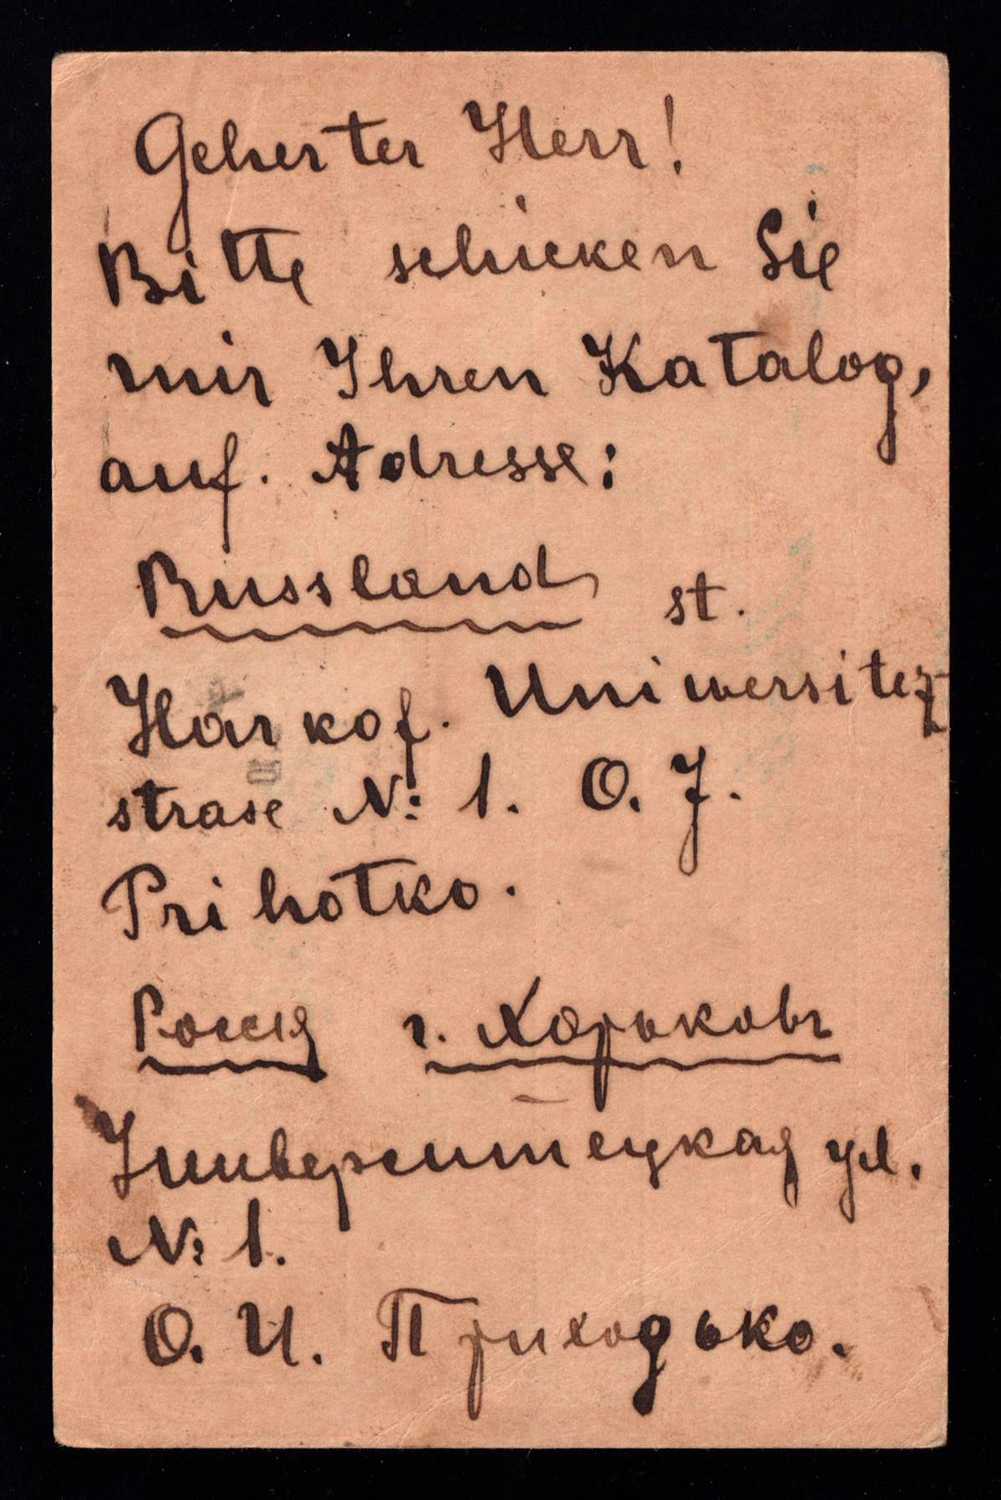 Geherter Herr!
Bitte schicken Sie
mir Ihren Katalog,
auf. Adresse:
Russland st.
Harkof. Uniwersitez
strase №: 1. O. J.
Prihotko.
Россія г. Харьковъ
Университецкая ул.
№: 1.
О. И. Приходько.